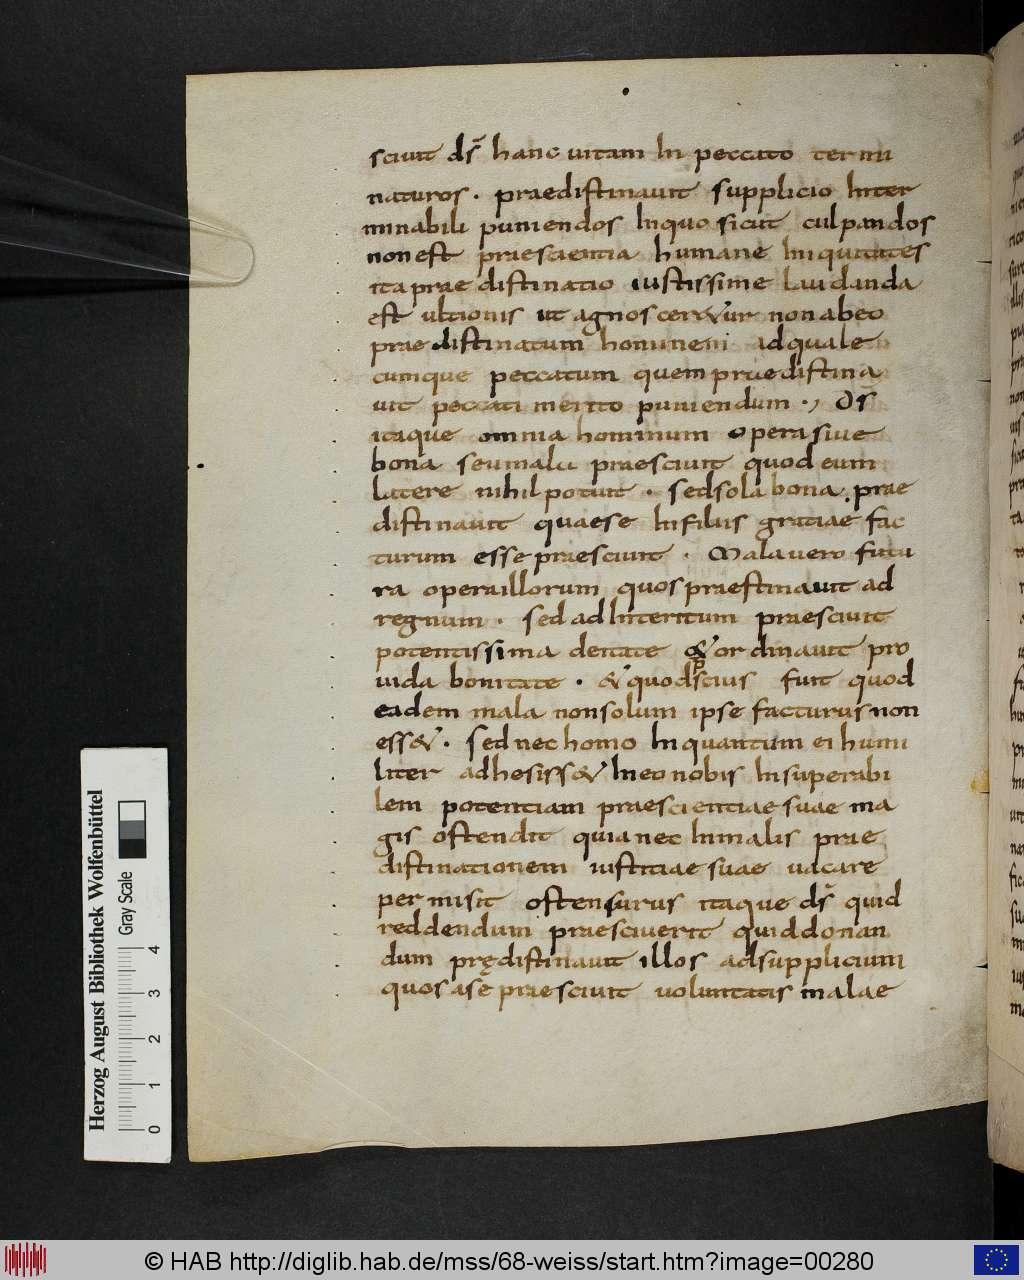 sciuit ds hanc uitam In peccato termi
naturos · praedistinauit supplicio Inter
minabili puniendos Inquo sicut culpandos
non est praescientia humane Iniquitates
ita prae distinatio iustissime laudanda
est ultionis ut agnoscer&ur non abeo
praedistinatum hominem adquale
cumque peccatum quem praedistina
uit peccati merito puniendum ·, ds
itaque omnia hominum opera siue
bona seu mala praesciuit quod eum
latere nihil potuit · sed sola bona prae
distinauit quae se In filiis gratiae fac
turum esse praesciuit · Mala uero futu
ra opera illorum quos praestinauit ad
regnum · sed ad Interitum praesciuit
potentissima deitate & ordinauit pro
uida bonitate · & quod pscius fuit quod
eadem mala non solum ipse facturus non
ess& · sed nec homo In quantum ei humi
liter adhesiss& In eo nobis Insuperabi
lem potentiam praescientiae suae ma
gis ostendit quia nec In malis prae
distinationem iustitiae suae uacare
permisit ostensurus itaque ds quid
reddendum praesciuerit quid donan
dum prędistinauit illos ad supplicium
quos a se praesciuit uoluntatis malae
Herzog August Bibliothek Wolfenbüttel
Gray Scale
0 1 2 3 4
© HAB http://diglib.hab.de/mss/68-weiss/start.htm?image=00280